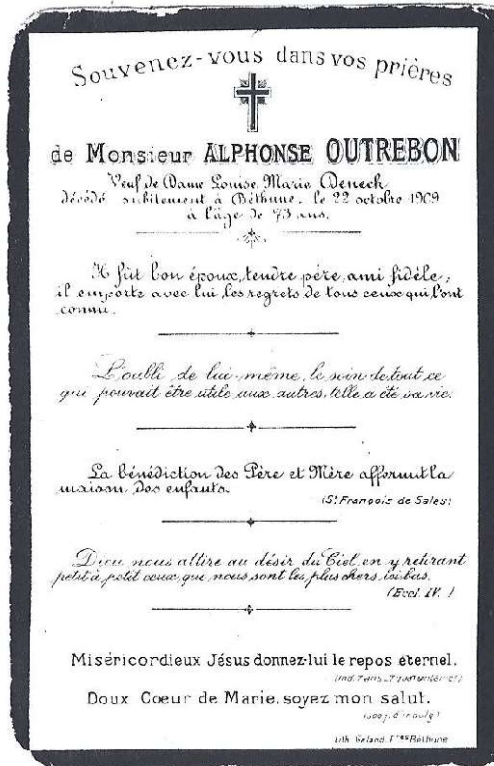 Souvenez-vous dans vos prières
de Monsieur ALPHONSE OUTREBON
Veuf de Dame Louise Marie Denech
décédé subitement à Béthune, le 22 octobre 1909
à l'âge de 73 ans.
Il fut bon époux, tendre père, ami fidèle;
il emporte avec lui les regrets de tous ceux qui l'ont
connu.
L'oubli de lui-même, le soin de tout ce
qui pouvait être utile aux autres, telle a été sa vie.
La bénédiction des Père et Mère affermit la
maison des enfants.
(St François de Sales)
Dieu nous attire au désir du Ciel, en y retirant
petit à petit ceux qui nous sont les plus chers ici bas.
(Eccl. IV.)
Miséricordieux Jésus donnez-lui le repos eternel.
(Ind. 7 ans
Doux Cœur de Marie, soyez mon salut.
(300 j. d'indulg)
Lith. Béthune